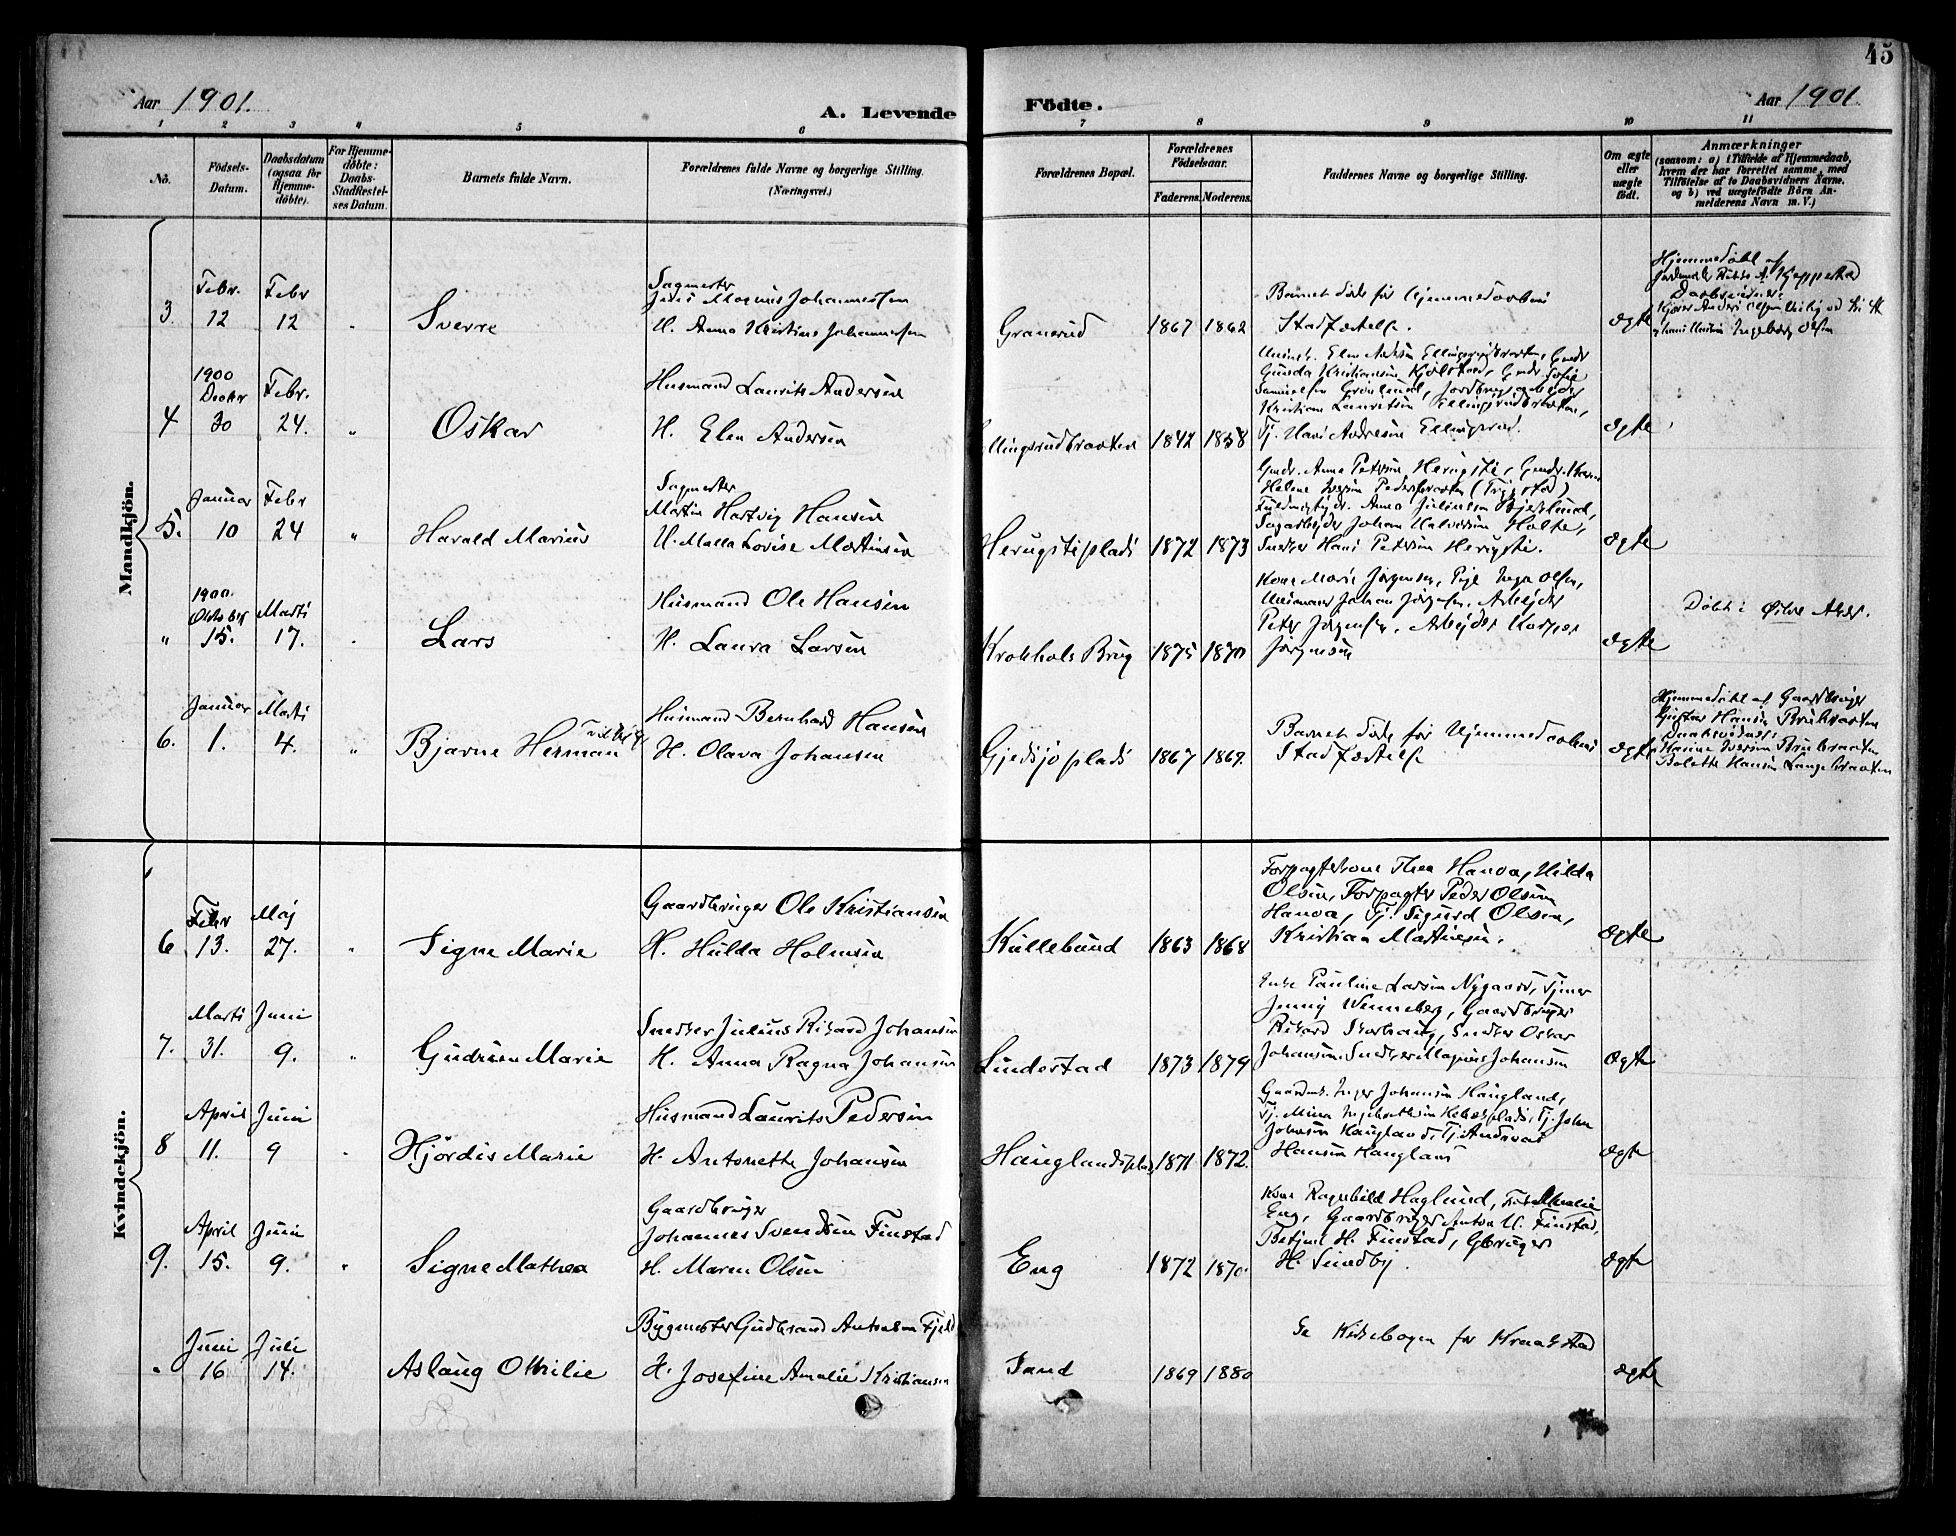 45
Aar 1901.
A. Levende Födte.
Aar 1901.
1 2 3 4 5 6 7 8 9 10 11
No.
Födsels-Datum.
Daabsdatum (ogsaa for Hjemme-döbte).
For Hjemme-döbte: Daabs-Stadfæstel-ses Datum.
Barnets fulde Navn.
Forældrenes fulde Navne og borgerlige Stilling.
(Næringsvei.)
Forældrenes Bopæl.
Forældrenes Födselsaar.
Faderens. Moderens.
Faddernes Navne og borgerlige Stilling.
Om ægte eller uægte födt.
Anmærkninger
(saasom: a) i Tilfælde af Hjemmedaab,
hvem der har forrettet samme, med
Tilföielse af to Daabsvidners Navne,
og b) ved uægtefödte Börn An-
melderens Navn m. V.)
Mandkjön.
3. Febr. 12 Febr 12 " Sverre
Sagmester
Magnus Johannessen
H. Anna Kristine Johannessen
Granerud 1867 1862
Barnet døde før Hjemmedaabens
Stadfæstelse.
ægte
Hjemmedøbt af
Daabsvidner:
4 1900 Decbr 30 Febr. 24. " Oskar
Husmand Laurits Andersen
H. Elen Andersen
Ellingsrudbraaten 1842 1858
Kristian Lauritsen Ellingsrudbraaten,
Tj. Hans Andersen Ellingsrud.
ægte
5. Januar 10 Febr 24 " Harald Marius
Sagmester
Martin Hartvig Hansen
H. Malla Lovise Martinsen
Herugstiplads 1872 1873
Gmdr. Anna Petersen Herugsti,
Helene Iversen Pedersbraaten (Trygstad)
Sagarbejder Johan Halvorsen Holte,
Snedker Hans Petersen Herugsti.
ægte
" 1900. Oktober 15. Marts 17. . Lars
Husmand Ole Hansen
H. Laura Larsen
Krokhols Brug 1875 1870
Kone Marie Jørgensen, Pige Inga Olsen,
Johan Jørgensen, Arbejder
Peter Jørgensen, Arbejder Kasper
Jørgensen
ægte
Døbt i Østre Aker.
6. Januar 1. Marts 4. " Bjarne Herman
Husmand Bernhard Hansen
H. Olava Johansen
Gjedsjøplads 1867 1869.
Barnet døde før Hjemmedaabens
Stadfæstelse
ægte
Hjemmedøbt af Gaardbruger
Gustav Hansen Brukraaten
Daabsvidner:
Hanna Iversen Brukraaten
Bolette Hansen Langebraaten
Kvindekjön.
6 Febr 13. Maj 27. " Signe Marie
Gaardbruger Ole Kristiansen
H. Hulda Holmsen
Kullebund 1863 1868
Forpagterkone Thea Hanoa, Hilda
Olsen, Forpagter Peder Olsen
Hanoa, Tj. Sigurd Olsen,
Kristian Martinsen.
ægte
7. Marts 31. Juni 9. " Gudrun Marie
Snedker Julius Rikard Johansen
H. Anna Ragna Johansen
Lindestad 1873 1879
Enke Pauline Larsen Nygaard, Tjener
Jenny Wenneberg, Gaardbruger
Rikard Skorhaug, Snedker Oskar
Johansen, Snedker Magnus Johansen
ægte
8 April 11. Juni 9 . Hjördis Marie
Husmand Laurits Pedersen
H. Antonette Johansen
Hauglandsplads 1871 1872.
Gaardmk. Inger Johansen Haugland,
Johansen Haugland, Tj. Andreas
Hansen Haugland
ægte
9. April 15. Juni 9. " Signe Mathea
Gaardbruger
Johannes Svendsen Finstad
H. Maren Olsen
Eng 1872 1870.
Kone Ragnhild Haglund, Amalie
Eng, Gaardbruger Anton H. Finstad,
H. Finstad, Gbruger
H. Sundby.
ægte
" Juni 16 Juli 14. Aslaug Othilie
Bygmester Gudbrand Antonsen Fjeld
H. Josefine Amalie Kristiansen
Sand 1869 1880
Se Kirkebogen for Kraakstad
ægte